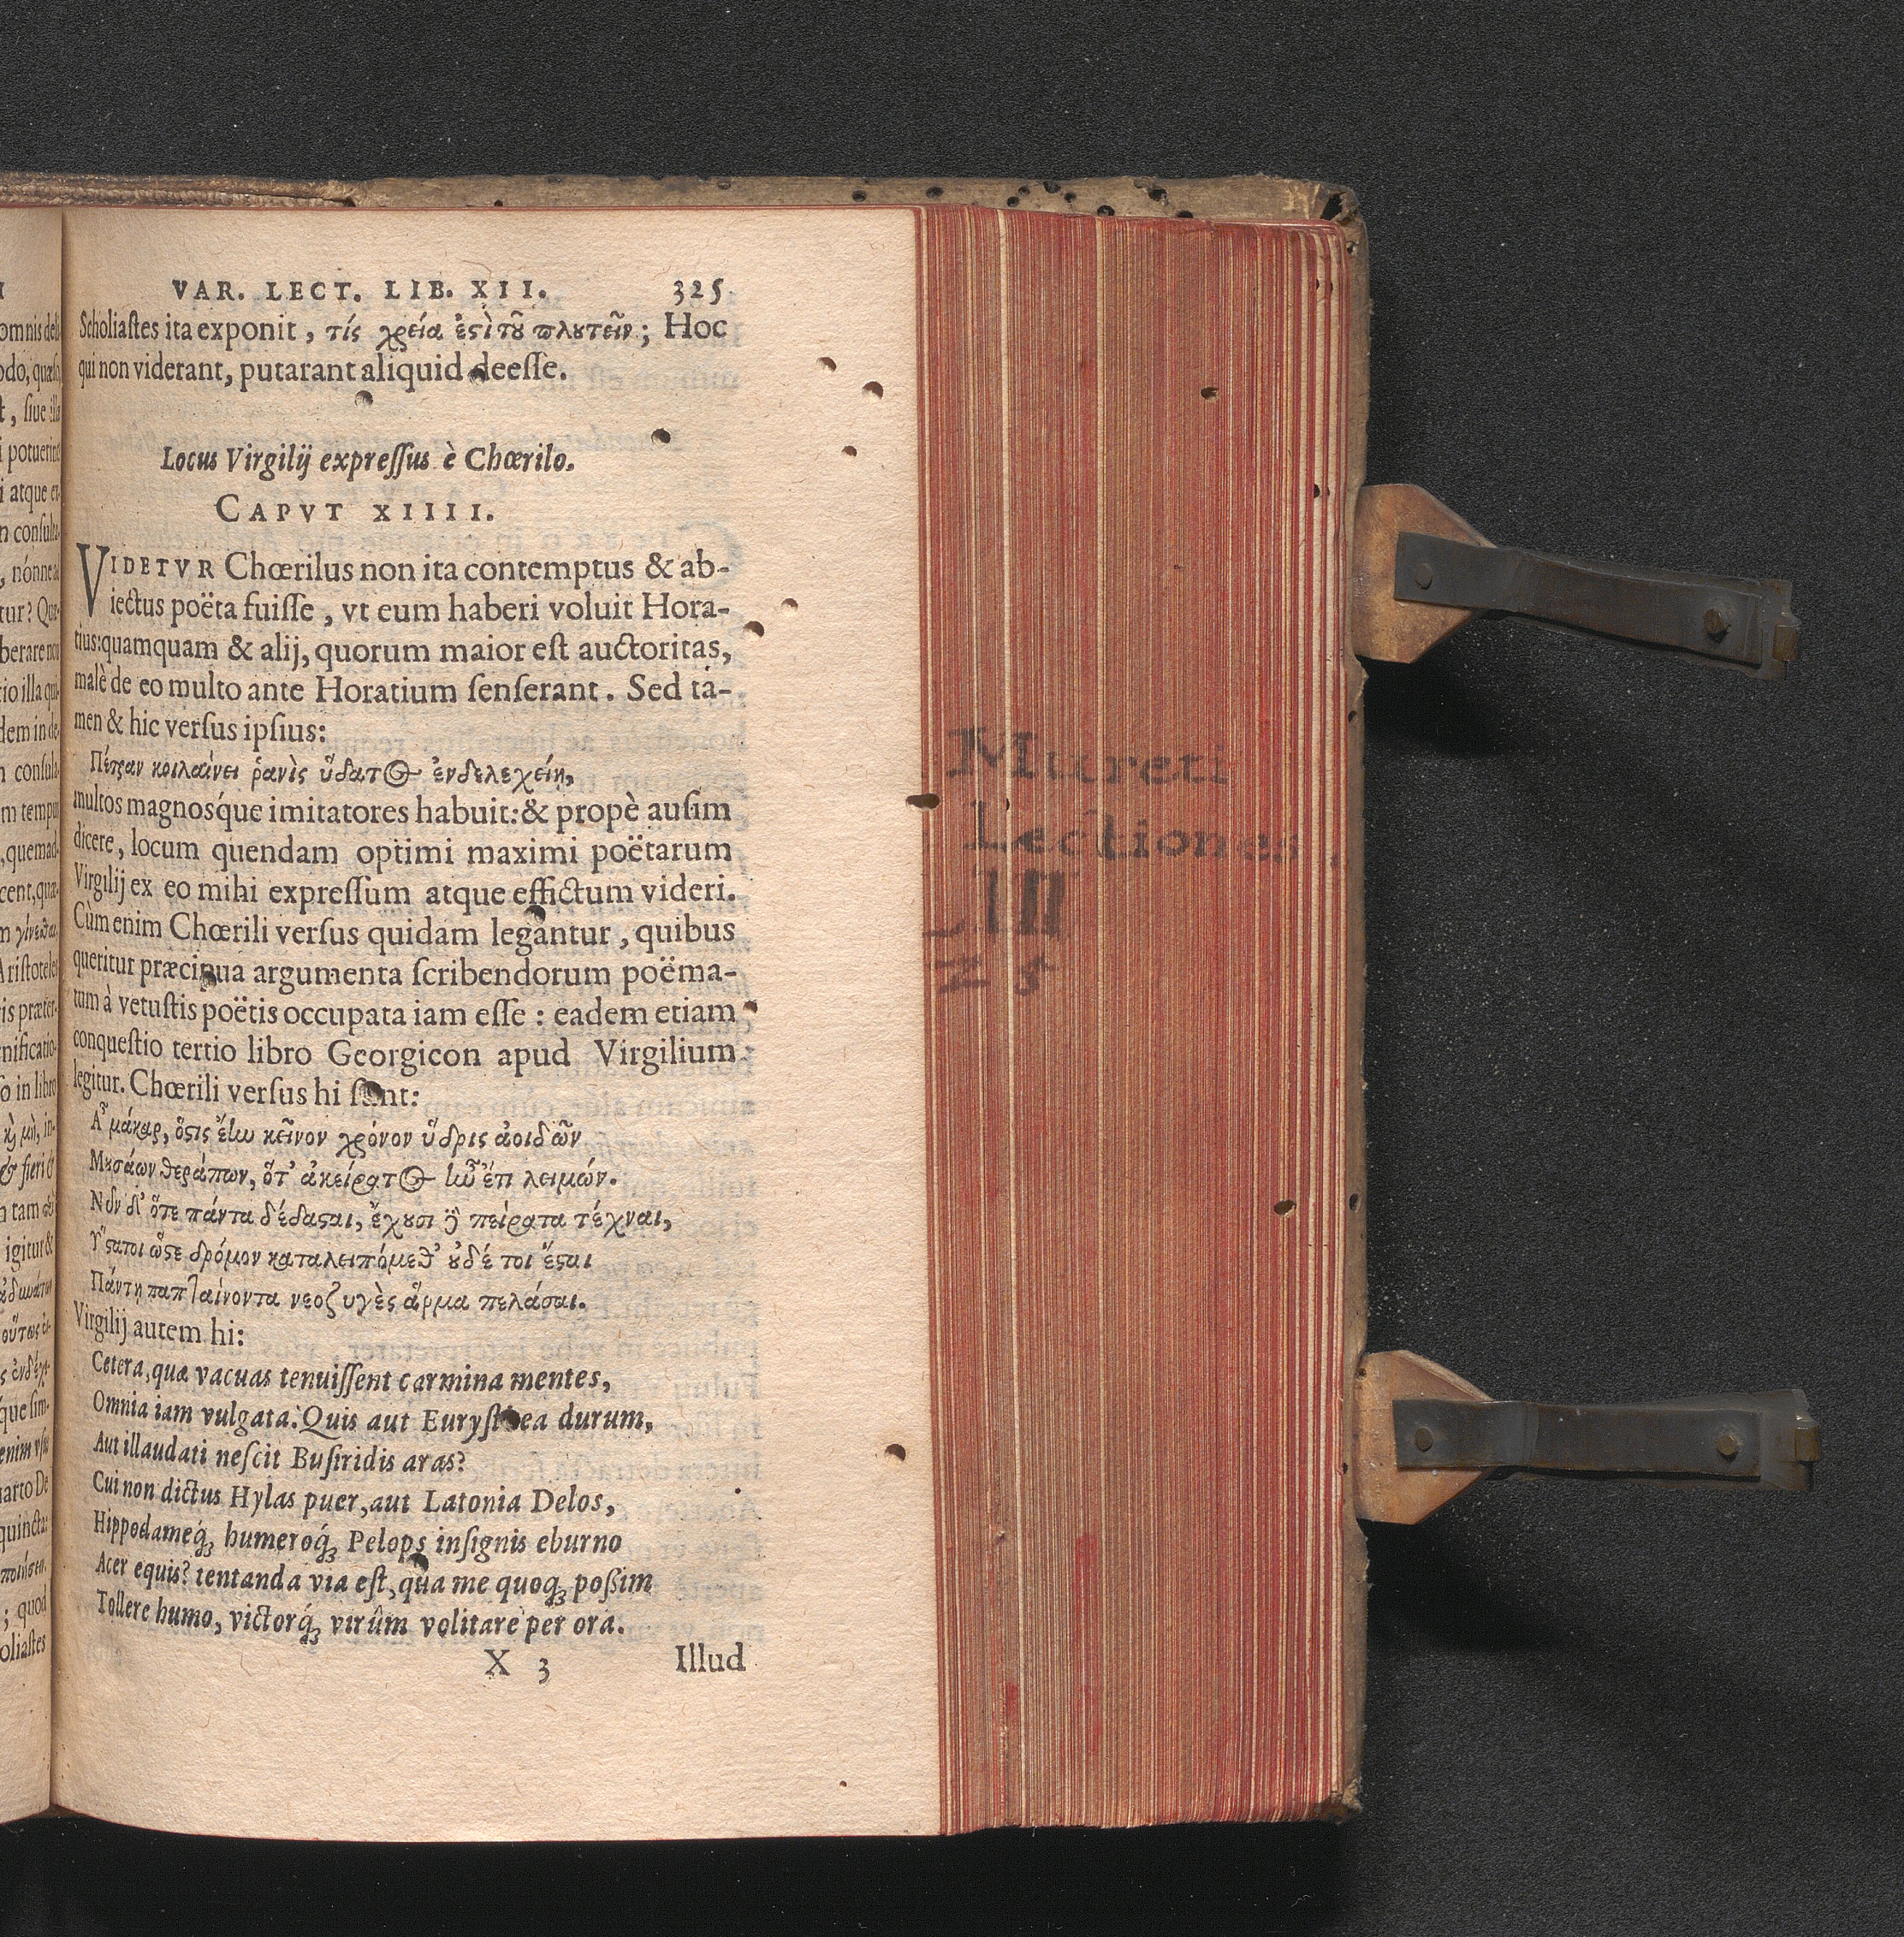 VAR. LECT. LIB. XII. 325
Scholiaſtes ita exponit, τίς χρεία ἐϛὶ τοῦ πλουτεῖν; Hoc
qui non viderant, putarant aliquid deeſſe.
Locus Virgilij expreſſus è Chœrilo.
CAPVT XIIII.
VIDETVR Chœrilus non ita contemptus & ab-
iectus poëta fuiſſe, vt eum haberi voluit Hora-
tius: quamquam & alij, quorum maior eſt auctoritas,
malè de eo multo ante Horatium ſenſerant. Sed ta-
men & hic verſus ipſius:
Πέτραν κοιλαίνει ῥανὶς ὕδατος ἐνδελεχείῃ,
multos magnosque imitatores habuit: & propè auſim
dicere, locum quendam optimi maximi poëtarum
Virgilij ex eo mihi expreſſum atque effictum videri.
Cùm enim Chœrili verſus quidam legantur, quibus
queritur præcipua argumenta ſcribendorum poëma-
tum à vetuſtis poëtis occupata iam eſſe: eadem etiam
conqueſtio tertio libro Georgicon apud Virgilium
legitur. Chœrili verſus hi ſunt:
Ἆ μάκαρ, ὅϛις ἔην κεῖνον χρόνον ὕδρις ἀοιδῶν
Μουσάων θεράπων, ὅτ' ἀκείρατος ἦν ἔτι λειμών.
Νῦν δ' ὅτε πάντα δέδαϛαι, ἔχουσι δὲ πείρατα τέχναι,
Ὕϛατοι ὥϛε δρόμου καταλειπόμεθ' οὐδέ τοι ἔϛαι
Πάντη παπταίνοντα νεοζυγὲς ἅρμα πελάσαι.
Virgilij autem hi:
Cetera, quæ vacuas tenuiſſent carmina mentes,
Omnia iam vulgata. Quis aut Euryſthea durum,
Aut illaudati neſcit Buſiridis aras?
Cui non dictus Hylas puer, aut Latonia Delos,
Hippodameq́ꝫ humeroq́ꝫ Pelops inſignis eburno
Acer equis? tentanda via eſt, qua me quoqꝫ poßim
Tollere humo, victorq́ꝫ virûm volitare per ora.
X 3 Illud
Mureti
Lectiones
III
Z 5